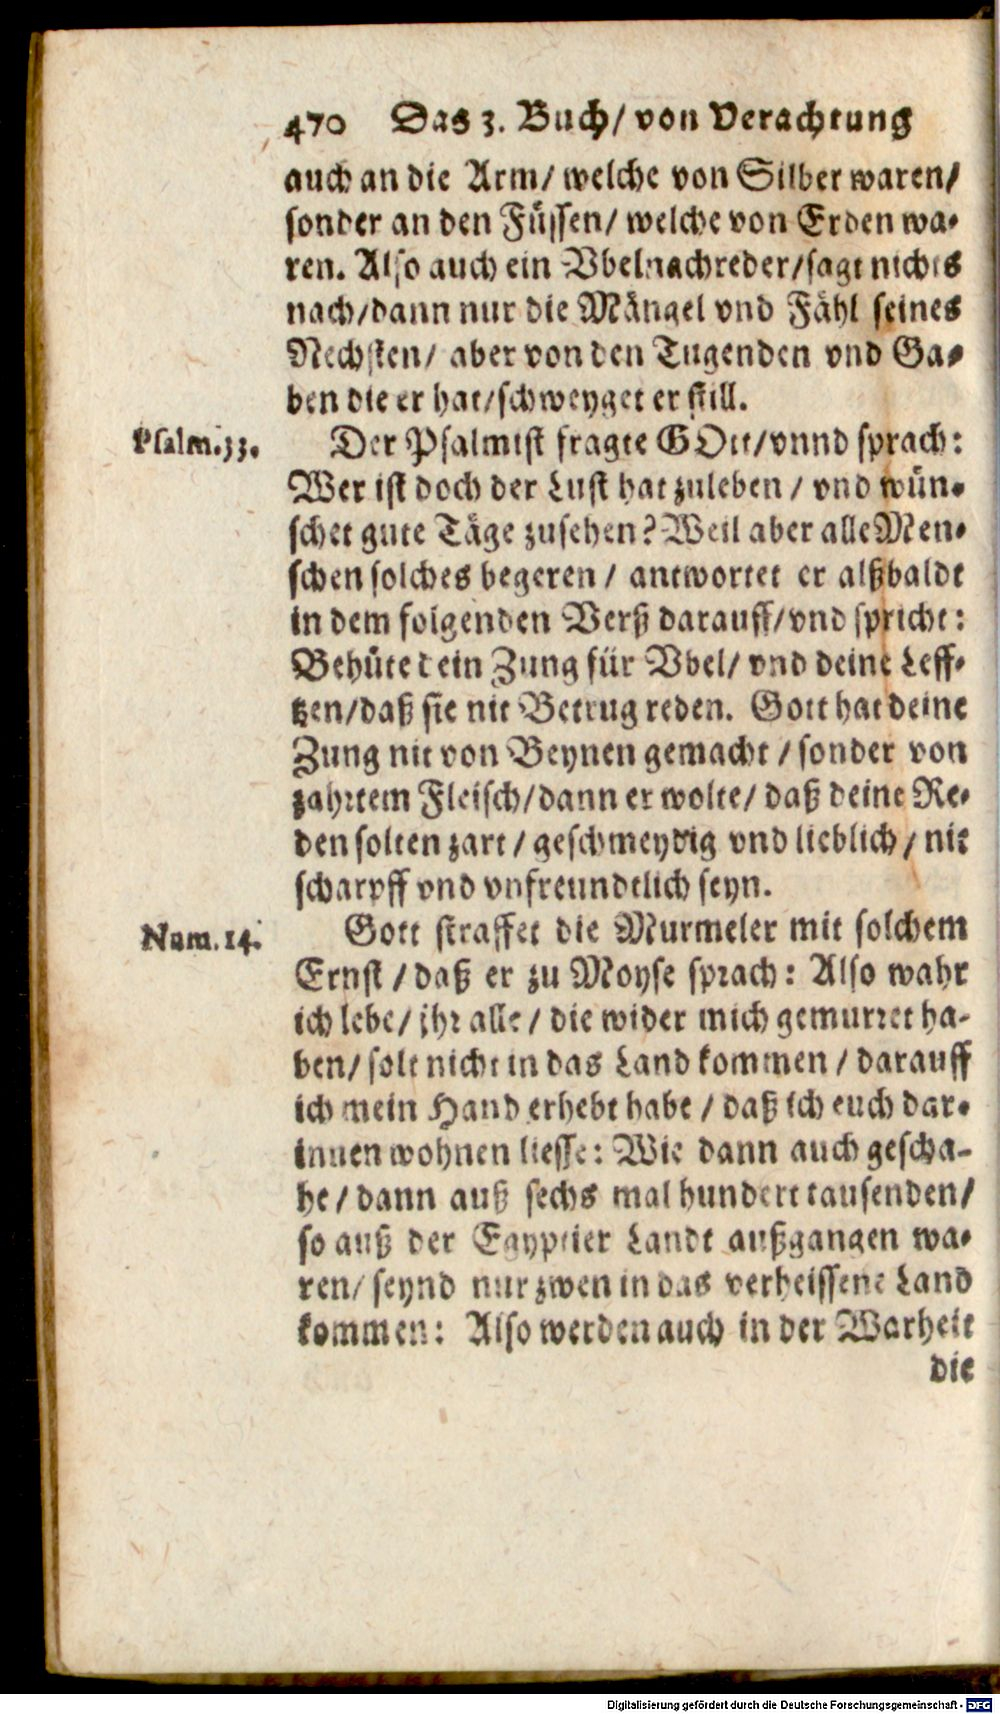 470 Das 3. Buch/ von Verachtung
auch an die Arm/ welche von Silber waren/
sonder an den Füssen/ welche von Erden wa-
ren. Also auch ein Vbelnachreder/sagt nichts
nach/dann nur die Mängel vnd Fähl seines
Nechsten/ aber von den Tugenden vnd Ga-
ben die er hat/schweyget er still.
Psalm.33.
Der Psalmist fragte GOtt/vnnd sprach:
Wer ist doch der Lust hat zuleben / vnd wün-
schet gute Täge zusehen? Weil aber alle Men-
schen solches begeren / antwortet er alßbaldt
in dem folgenden Verß darauff/vnd spricht:
Behüte dein Zung für Vbel/ vnd deine Leff-
tzen/daß sie nit Betrug reden. Gott hat deine
Zung nit von Beynen gemacht / sonder von
zahrtem Fleisch/dann er wolte/ daß deine Re-
den solten zart / geschmeydig vnd lieblich / nit
scharpff vnd vnfreundtlich seyn.
Num.14.
Gott straffet die Murmeler mit solchem
Ernst / daß er zu Moyse sprach: Also wahr
ich lebe/ jhr alle / die wider mich gemurret ha-
ben/ solt nicht in das Land kommen / darauff
ich mein Hand erhebt habe / daß ich euch dar-
innen wohnen liesse: Wie dann auch gescha-
he / dann auß sechs mal hundert tausenden/
so auß der Egyptier Landt außgangen wa-
ren/ seynd nur zwen in das verheissene Land
kommen: Also werden auch in der Warheit
die
Digitalisierung gefördert durch die Deutsche Forschungsgemeinschaft - DFG